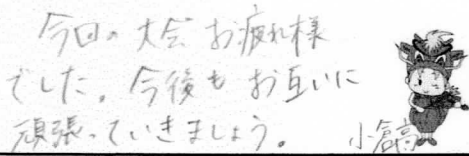 今回の大会お疲れ様
でした。今後もお互いに
頑張っていきましょう。
小倉高